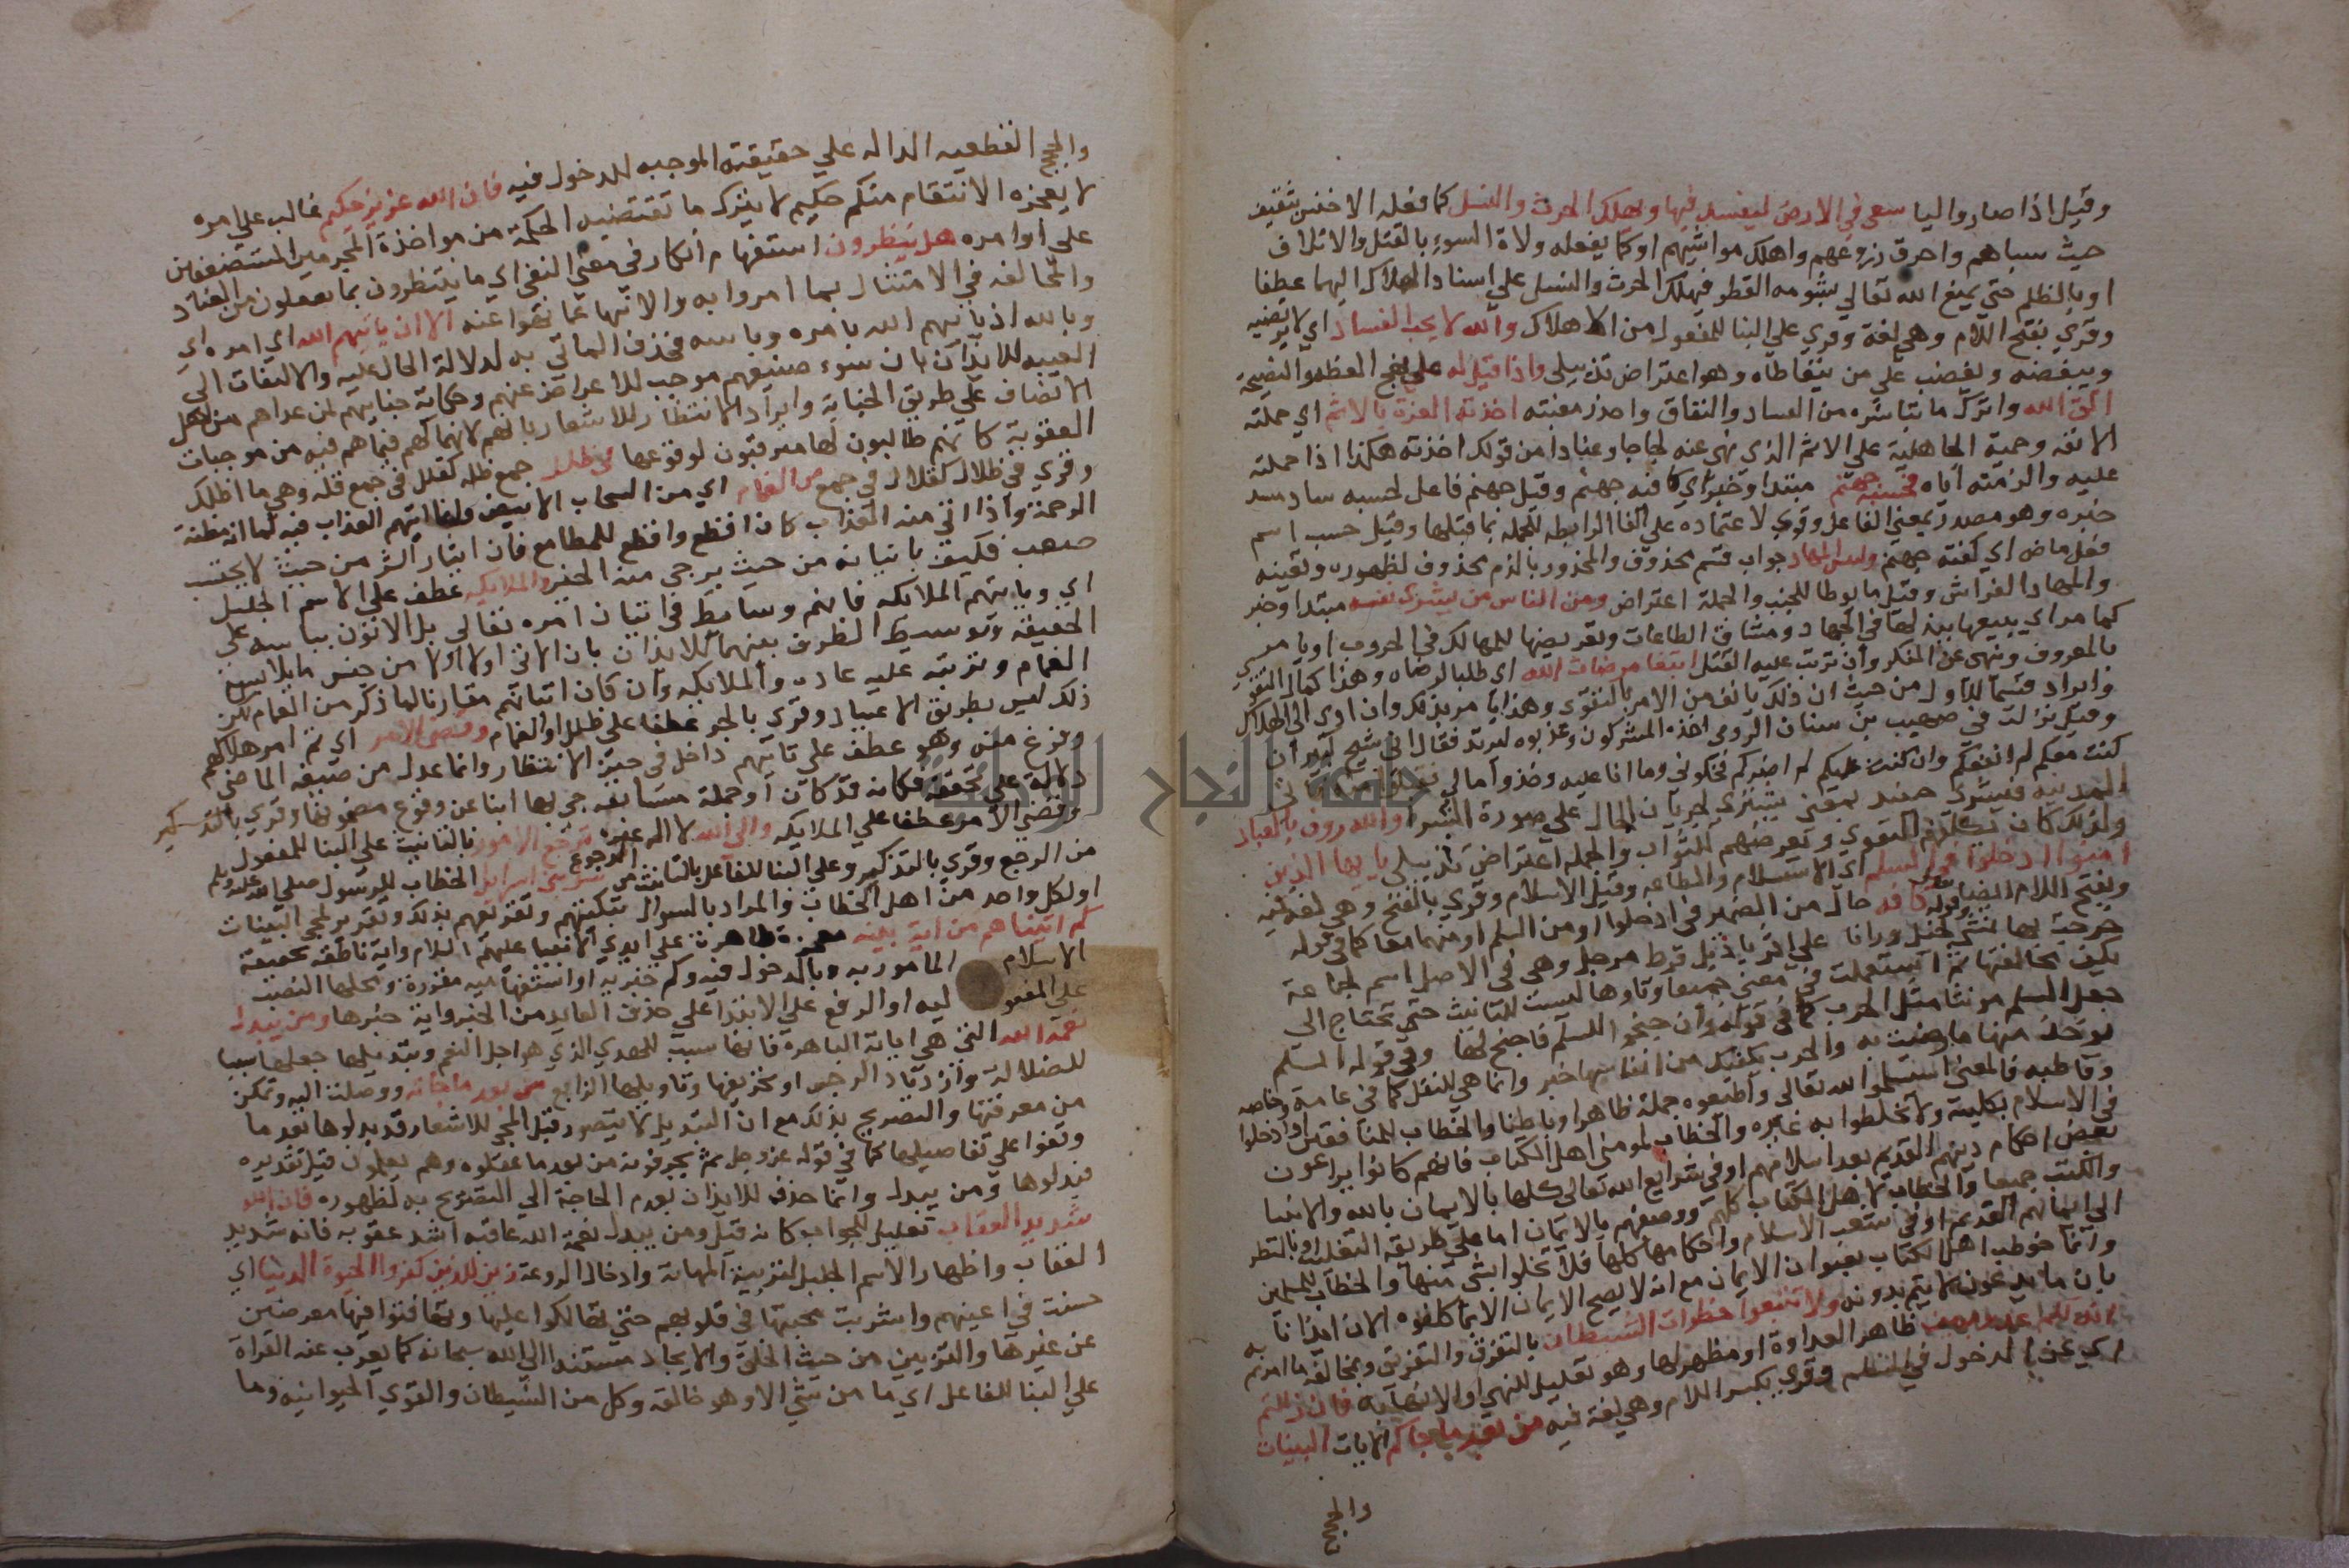 وقيل اذا صار واليا سعى في الارض ليفسد فيها ويهلك الحرث والنسل كما فعله الاخنس بثقيف
حيث سباهم واحرق زروعهم واهلك مواشيهم او كما يفعله ولاة السوء بالقتل والاتلاف
او بالظلم حتى يمنع الله تعالى بشومه القطر فيهلك الحرث والنسل على اسناد الهلاك اليها عطفا
وقري بفتح اللام وهي لغة وقري على البنا للمفعول من الاهلاك والله لا يحب الفساد اي لا يرتضيه
ويبغضه ويغضب على من يتعاطاه وهو اعتراض تذييلي واذا قيل له على نهج العظه والنصيحة
اتق الله واترك ما تباشره من الفساد والنفاق واحذر مغبته اخذته العزة بالاثم اي حملته
الانفه وحمية الجاهلية على الاثم الذي نهي عنه لجاجا وعنادا من قولك اخذته هكذا اذا حملته
عليه والزمته اياه فحسبه جهنم مبتدا وخبر اي كافيه جهنم وقيل جهنم فاعل لحسبه ساد مسد
خبره وهو مصدر بمعنى الفاعل وقوي لاعتماده على الفا الرابطه للجمله بما قبلها وقيل حسب اسم
فعل ماض اي كفته جهنم ولبئس المهاد جواب قسم محذوف والمخذور بالذم محذوف لظهوره وتعينه
والمهاد الفراش وقيل ما يوطا للجنب والجملة اعتراض ومن الناس من يشري نفسه مبتدا وخبر
كما مر اي يبيعها ببذلها في الجهاد ومشاق الطاعات وتعريضها للمهالك في الحروب او يامر
بالمعروف وينهى عن المنكر وان ترتب عليه القتل ابتغا مرضات الله اي طلبا لرضاه وهذا كمال التقوى
وايراد قسما للاول من حيث ان ذلك يانف من الامر بالتقوى وهذا يامر بذلك وان ادى الى الهلاك
وقيل نزلت في صهيب بن سنان الرومي اخذه المشركون وعذبوه ليرتد فقال اني شيخ كبير ان
كنت معكم لم انفعكم وان كنت عليكم لم اضركم فخلوني وما انا عليه وخذوا مالي فقبلوا منه واتى
المدينه فيشري حينئذ بمعنى يشتري لجريان الحال على صورة الشرا والله روف بالعباد
ولذلك كان يكلفهم التقوى ويعرضهم للثواب والجمله اعتراض تذييلي يا ايها الذين
امنوا ادخلوا في السلم اي الاستسلام والطاعه وقيل الاسلام وقري بالفتح وهي لغة فيه
وبفتح اللام ايضا وقوله تعالى كافه حال من الضمير في ادخلوا او من السلم او منهما معا كما في قوله
خرجت بها نمشي تجر ورانا على اثرينا ذيل مرط مرجل وهي في الاصل اسم لجماعة
تكف مخالفها ثم استعملت في معنى جميعا وتاوها ليست للتانيث حتى تحتاج الى
جعل السلم مونثا مثل الحرب كما في قوله وان جنحوا للسلم فاجنح لها وفي قوله السلم
تاخذ منها ما رضيت به والحرب يكفيك من انفاسها جرع وانما هي للنقل كما في عامة وخاصه
وقاطبه فالمعنى استسلموا لله تعالى واطيعوه جملة ظاهرا وباطنا والخطاب للمنافقين او ادخلوا
في الاسلام بكليته ولا تخلطوا به غيره والخطاب لمومني اهل الكتاب فانهم كانوا يراعون
بعض احكام دينهم القديم بعد اسلامهم او في شرايع الله تعالى كلها بالايمان بالله والانبيا
والكتب جميعا والخطاب لاهل الكتاب كلهم ووصفهم بالايمان اما على طريقة التغليب او بالنظر
الى ايمانهم القديم او في شعب الاسلام واحكامها كلها فلا تخلوا بشي منها والخطاب للمسلمين
وانما خوطب اهل الكتاب بعنوان الايمان مع انه لا يصح الايمان الا بما كلفوه الان ايذانا
بان ما يدعونه لا يتم بدونه ولا تتبعوا خطوات الشيطان بالتفرق والتفريق ومخالفة ما امرتم به
انه لكم عدو مبين ظاهر العداوة او مظهر لها وهو تعليل للنهي او الانتها فان زللتم
اي عن الدخول في السلم وقري بكسر اللام وهي لغة فيه من بعد ما جاتكم الايات البينات
والحجج
والحجج القطعيه الداله على حقيقته الموجبه للدخول فيه فان الله عزيز حكيم غالب على امره
لا يعجزه الانتقام منكم حكيم لا يترك ما تقتضيه الحكمة من مواخذة المجرمين المستضعفين
على اوامره هل ينظرون استفهام انكار في معنى النفي اي ما ينتظرون بما يفعلون من العناد
والمخالفه في الامتثال بما امروا به والانتها عما نهوا عنه الا ان ياتيهم الله اي امره اي
وباسه اذ ياتيهم الله بامره وباسه فحذف الماتي به لدلالة الحال عليه والالتفات الى
الغيبه للايذان بان سوء صنيعهم موجب للاعراض عنهم وحكاية جنايتهم لمن عداهم من اهل
الانصاف على طريق الجناية وايراد الانتظار للاشعار بانهم لانهماكهم فيما هم فيه من موجبات
العقوبة كانهم طالبون لها مترقبون لوقوعها في ظلل جمع ظله كقلل في جمع قله وهي ما اظلك
وقري في ظلال كقلال في جمع من الغمام اي من السحاب الابيض وانما اتيهم العذاب فيه لما انه مظنة
الرحمة واذا اتى منه العذاب كان افظع واقطع للمطامع فان اتيان الشر من حيث لا يحتسب
صعب فكيف باتيانه من حيث يرجى منه الخير والملايكه عطف على الاسم الجليل
اي وياتيهم الملايكه فانهم وسايط في اتيان امره تعالى بل الاتون بباسه على
الحقيقة وتوسيط الظرف بينهما للايذان بان الاتي اولا من جنس ما يلابس
الغمام ويترتب عليه عاده والملايكه وان كان اتيانهم مقارنا لما ذكر من الغمام لكن
ذلك ليس بطريق الاعتياد وقري بالجر عطفا على ظلل او الغمام وقضي الامر اي تم امر هلاكهم
وفرغ منه وهو عطف على ياتيهم داخل في حيز الانتظار وانما عدل من صيغه الماضي
دلالة على تحققه فكانه قد كان او جملة مستانفه جي بها انبا عن وقوع مضمونها وقري بالتذكير
وقضي الامر عطفا على الملايكه والى الله لا الى غيره ترجع الامور بالتانيث على البنا للمفعول
من الرجع وقري بالتذكير وعلى البنا للفاعل بالتانيث من الرجوع سل بني اسرايل الخطاب للرسول صلى الله عليه وسلم
او لكل واحد من اهل الخطاب والمراد بالسوال تبكيتهم وتقريعهم بذلك وتقرير لمجي البينات
كم اتيناهم من اية بينه معجزة ظاهرة على ايدي الانبيا عليهم السلام واية ناطقه بحقيقة
الاسلام المامور به بالدخول فيه وكم خبريه او استفهاميه مقررة ومحلها النصب
على المفعو ليه او الرفع على الابتدا على حذف العايد من الخبر واية خبرها ومن يبدل
نعمة الله التي هي اياته الباهرة فانها سبب للهدى الذي هو اجل النعم وتبديلها جعلها سببا
للضلالة وازدياد الرجس او تحريفها وتاويلها الزايغ من بعد ما جاته ووصلت اليه وتمكن
من معرفتها والتصريح بذلك مع ان التبديل لا يتصور قبل المجي للاشعار قد بدلوها بعد ما
وقفوا على تفاصيلها كما في قوله عز وجل ثم يحرفونه من بعد ما عقلوه وهم يعلمون قيل تقديره
فبدلوها ومن يبدل وانما حذف للايذان بعدم الحاجة الى التصريح به لظهوره فان الله
شديد العقاب تعليل للجواب كانه قيل ومن يبدل نعمة الله عاقبه اشد عقوبه فانه شديد
العقاب واظهار الاسم الجليل لتربية المهابة وادخال الروعة زين للذين كفروا الحيوة الدنيا اي
حسنت في اعينهم واشربت محبتها في قلوبهم حتى تهالكوا عليها وتهافتوا فيها معرضين
عن غيرها والتزيين من حيث الخلق والايجاد مستند الى الله سبحانه كما يعرب عنه القراة
على البنا للفاعل اي ما من شي الا وهو خالقه وكل من الشيطان والقوى الحيوانيه وما
جامعة النجاح الوطنية